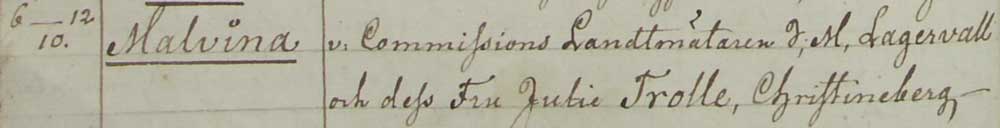 6 12
10. Malvina v: Commissions Landtmätaren J, M, Lagervall
och dess Fru Julie Trolle, Christineberg,